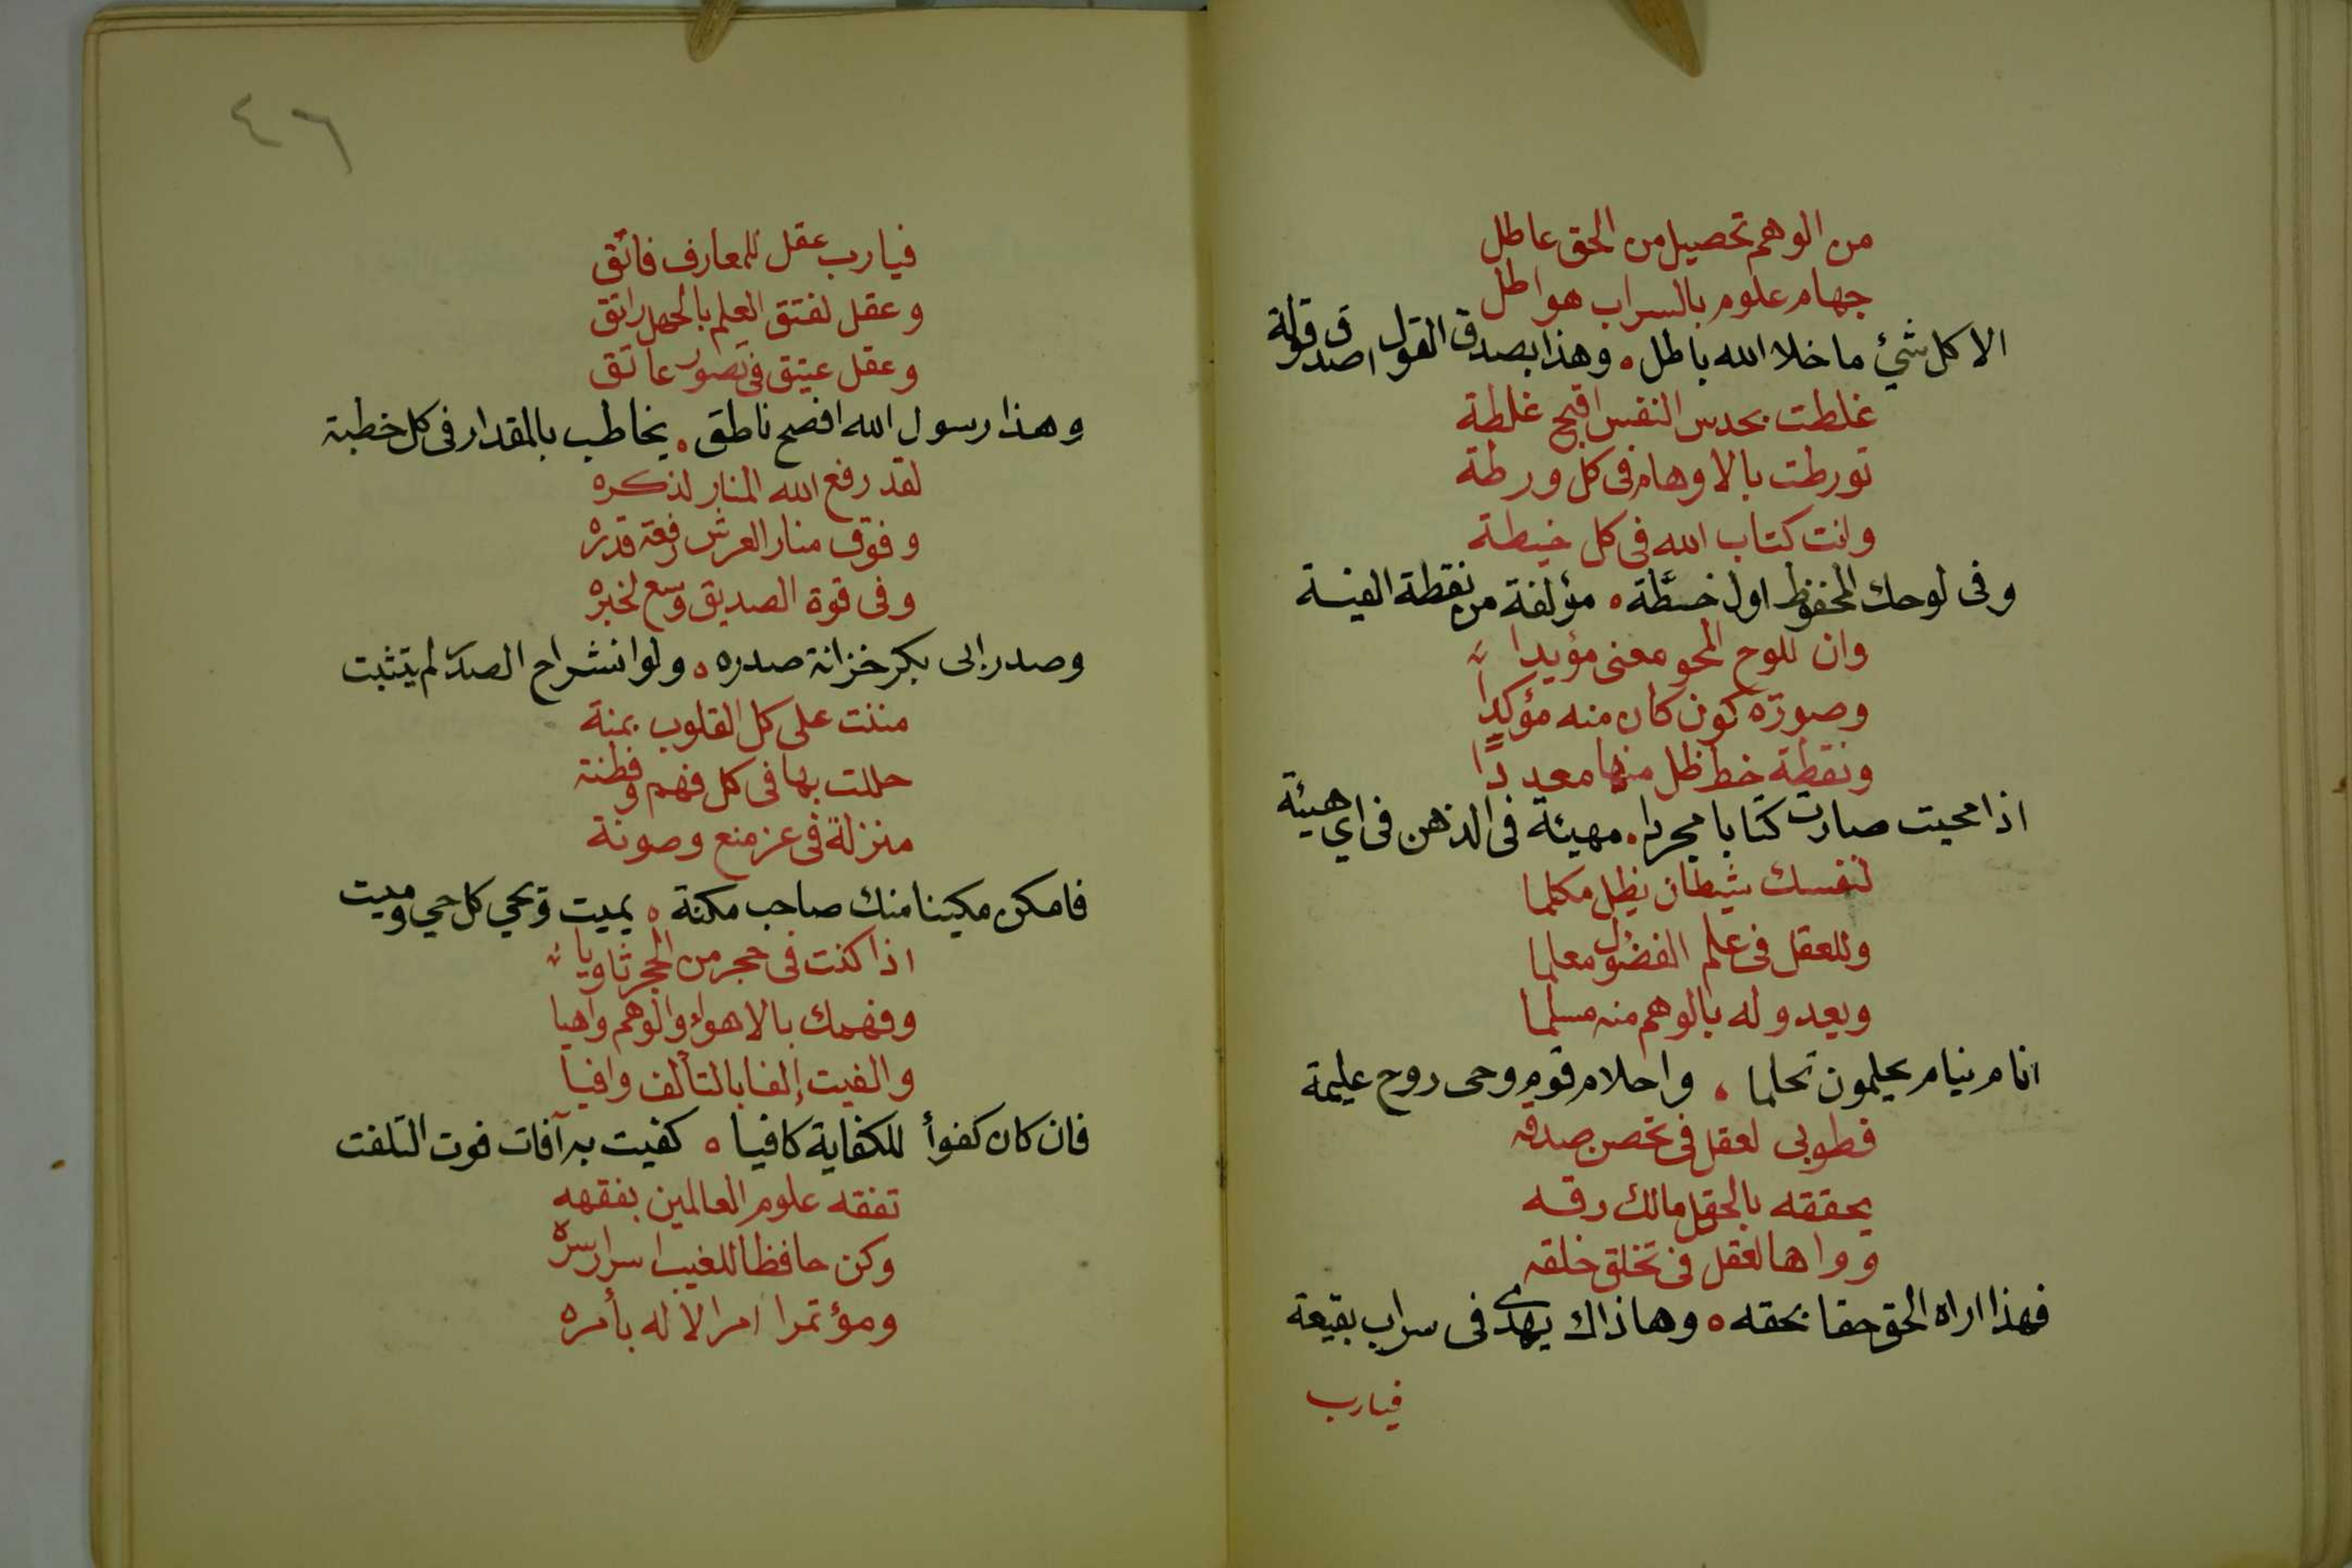 من الوهم تحصيل من الحق عاطل
جهام علوم بالسراب هواطل
الا كل شئ ما خلا الله باطل ه وهذا بصدق القول اصدق قولة
غلطت بحدس النفس اقبح غلطة
تورطت بالاوهام فى كل ورطة
وانت كتاب الله فى كل خيطة
وفى لوحك المحفوظ اول خطة ه مؤلفة من نقطة الفيئة
وان للوح المحو معنى مؤيدا
وصورة كون كان منه مؤكدا
ونقطة خط ظل منها معددا
اذا محيت صارت كتابا مجردا ه مهيئة فى الذهن فى اي هيئة
لنفسك شيطان يظل مكلما
وللعقل فى علم الفضول معلما
ويعدو له بالوهم منه مسلما
انام نيام يحلمون تحلما ه واحلام قوم وحى روح عليمة
فطوبى لعقل فى تخصص صدقه
يحققه بالحق مالك رقه
وواها لعقل فى تخلق خلقه
فهذا اراه الحق حقا بحقه ه وهاذاك يهدى فى سراب بقيعة
فيارب
٤٦
فيارب عقل للمعارف فاتق
وعقل لفتق العلم بالجهل راتق
وعقل عتيق فى تصور عاتق
وهذا رسول الله افصح ناطق ه يخاطب بالمقدار فى كل خطبة
لقد رفع الله المنار لذكره
وفوق منار العرش رفعة قدره
وفى قوة الصديق وسع لخبره
وصدر ابى بكر خزانة صدره ه ولو انشراح الصدر لم يتثبت
مننت على كل القلوب بمنة
حللت بها فى كل فهم وفطنة
منزلة فى عز منع وصونة
فامكن مكينا منك صاحب مكنة ه يميت ويحي كل حي وميت
اذا كنت فى حجر من الحجر ثاويا
وفهمك بالاهواء والوهم واهيا
والفيت إلفا بالتألف وافيا
فان كان كفوأ للكفاية كافيا ه كفيت به آفات فوت التلفت
تفقه علوم العالمين بفقهه
وكن حافظا للغيب اسرار سره
ومؤتمرا امر الاله بأمره